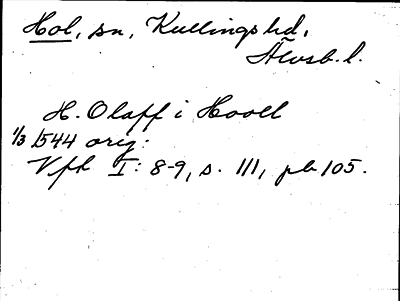 Hol, sn, Kullings hd,
Älvsb. l.
H. Olaff i Hooll
1/3 1544 orig:
Vfh I: 8-9, s. 111, pb 105.